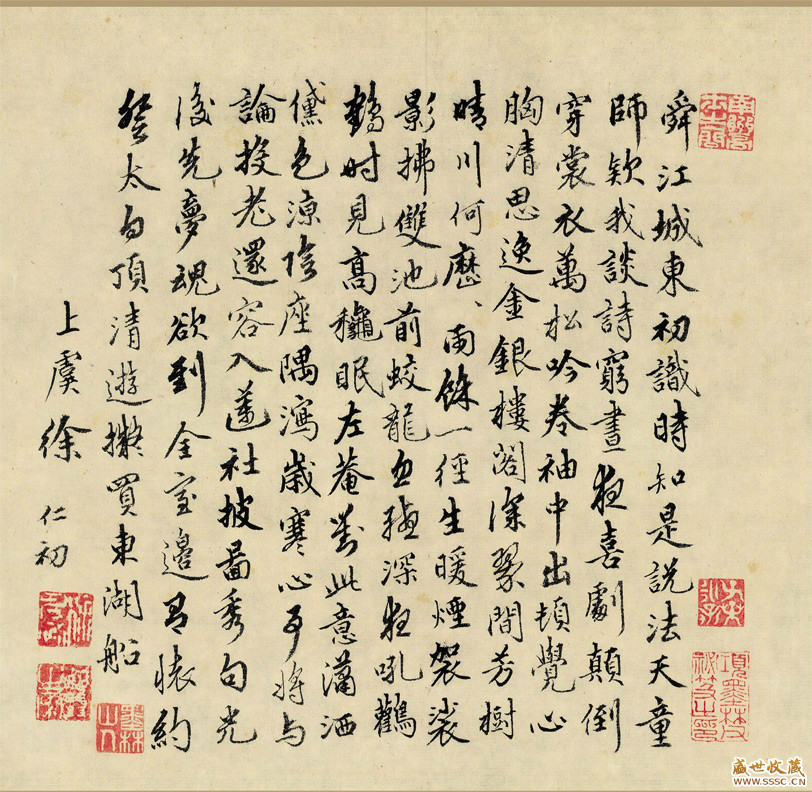 舜江城東初識時知是說法天童
師欵我談詩窮晝夜喜劇顛倒
穿裳衣萬松吟卷袖中出頓覺心
胸清思逸金銀樓閣深翠間芳樹
晴川何歷、雨餘一徑生暖煙袈裟
影拂雙池前蛟龍血深夜吼鸛
鶴時見高巢眠左菴對此意瀟洒
黛色涼陰座隅瀉歲寒心事將与
論投老還容入蓮社披圖秀句光
後先夢魂欲到金室邊有懷約
登太白頂清遊擬買東湖船
上虞徐仁初
盛世收藏
WWW.SSSC.CN